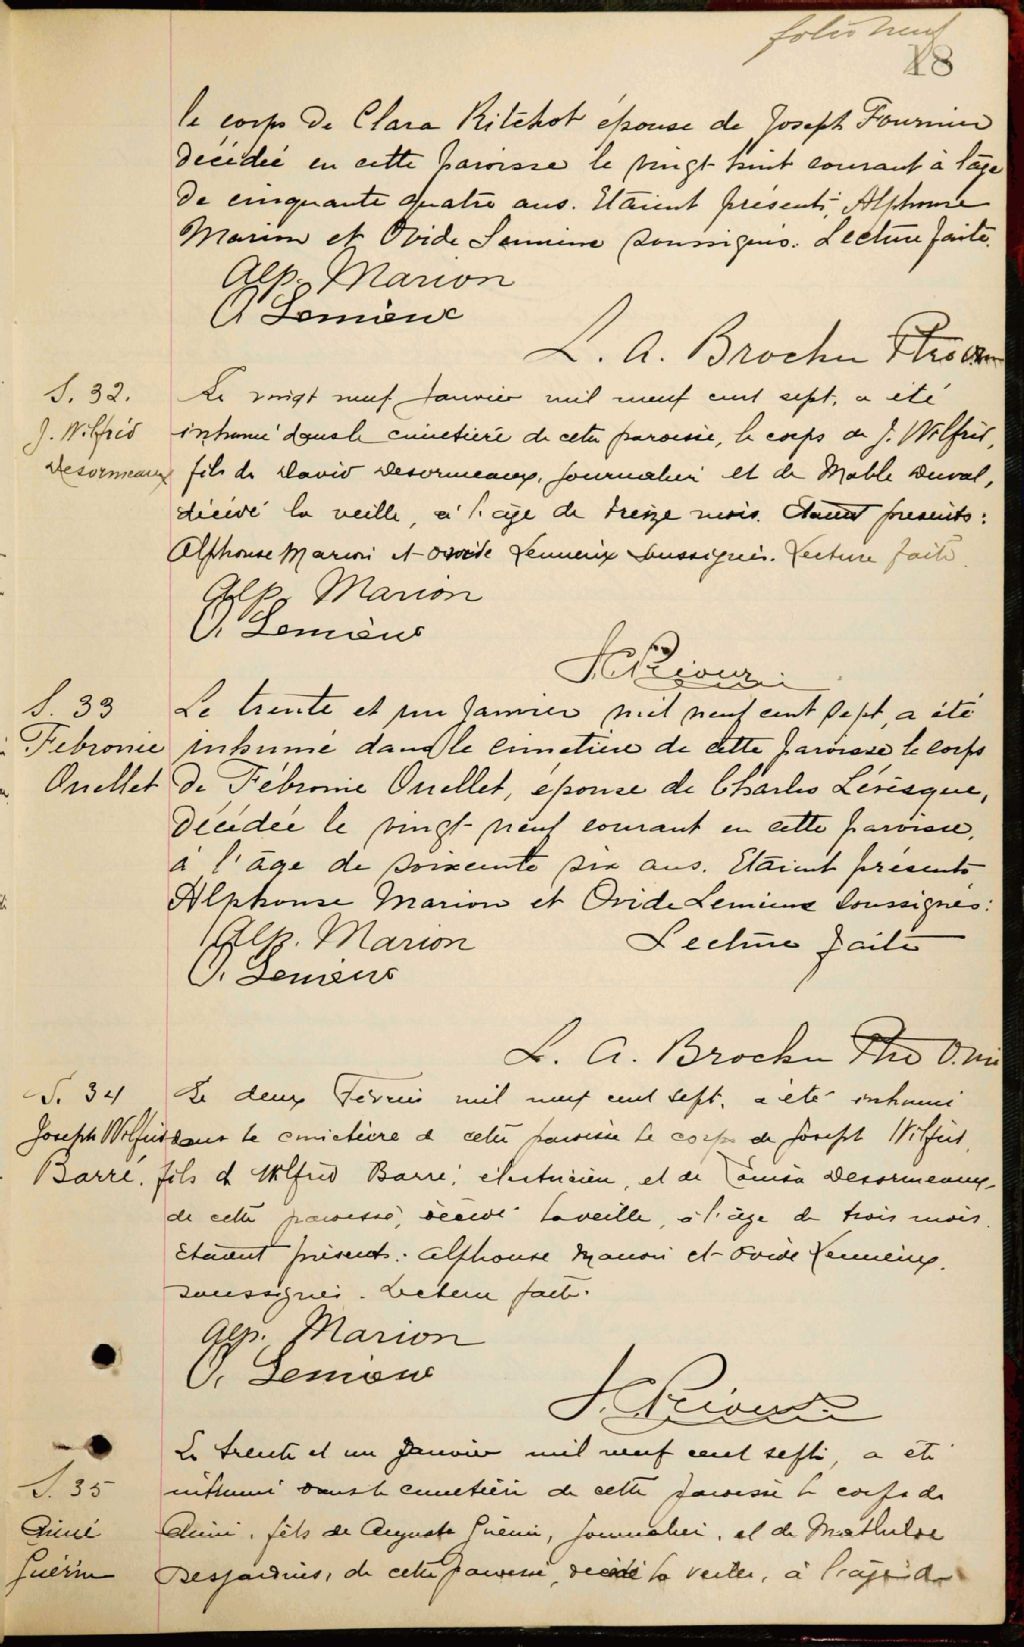 folio neuf
18
le corps de Clara Ritchot épouse de Joseph Fournier
décédée en cette paroisse le vingt huit courant à l'âge
de cinquante quatre ans. Etaient présents, Alphonse
Marion et Ovide Lemieux soussignés. Lecture faite.
Alp. Marion
O Lemieux
L. A. Brochu Ptre O.m
S. 32.
J. Wilfrid
Desormeaux
Le vingt neuf Janvier mil neuf cent sept, a été
inhumé dans le cimetière de cette paroisse, le corps de J. Wilfrid,
fils de David Desormeaux, journalier et de Mable Duval,
décédé la veille, à l'âge de treize mois. Etaient presents:
Alphonse Marion et Ovide Lemieux soussignés. Lecture faite.
Alp. Marion
O. Lemieux
S. 33
Febronie
Ouellet
Le trente et un Janvier mil neuf cent sept, a été
inhumé dans le cimetière de cette paroisse le corps
de Fébronie Ouellet, épouse de Charles Lévesque,
décédée le vingt-neuf courant en cette paroisse,
à l'âge de soixante six ans. Etaient présents
Alphonse Marion et Ovide Lemieux soussignés:
Lecture faite
Alp. Marion
O. Lemieux
L. A. Brochu Ptre O.mi
S. 34
Joseph Wilfrid
Barré.
Le deux Fevrier mil neuf cent sept, a été inhumé
dans le cimetière de cette paroisse le corps de Joseph Wilfrid,
fils de Wilfrid Barré, électricien, et de Louisa Desormeaux,
de cette paroisse, décédé la veille, à l'âge de trois mois.
Etaient présents: Alphonse Marion et Ovide Lemieux,
soussignés. Lecture faite.
Alp. Marion
O. Lemieux
S. 35
Aimé
Guérin
Le trente et un Janvier mil neuf cent sept, a été
inhumé dans le cimetière de cette paroisse le corps de
Aimé, fils de Auguste Guérin, journalier, et de Mathilde
Desjardins, de cette paroisse, décédé la veille, à l'âge de